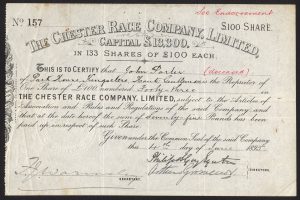 See Endorsement
No 157
£100 SHARE.
THE CHESTER RACE COMPANY, LIMITED,
CAPITAL £13,300.
IN 133 SHARES OF £100 EACH.
THIS IS TO CERTIFY that John Porter (deceased)
of Park House Kingsclere is the Proprietor of
One Share of £100 Numbered Forty-three in
THE CHESTER RACE COMPANY, LIMITED, subject to the Articles of
Association and Rules and Regulations of the said Company and
that at the date hereof the sum of Seventy-five Pounds has been
paid up in respect of such Share
Given under the Common Seal of the said Company
this day of 1893
DIRECTORS.
SECRETARY.